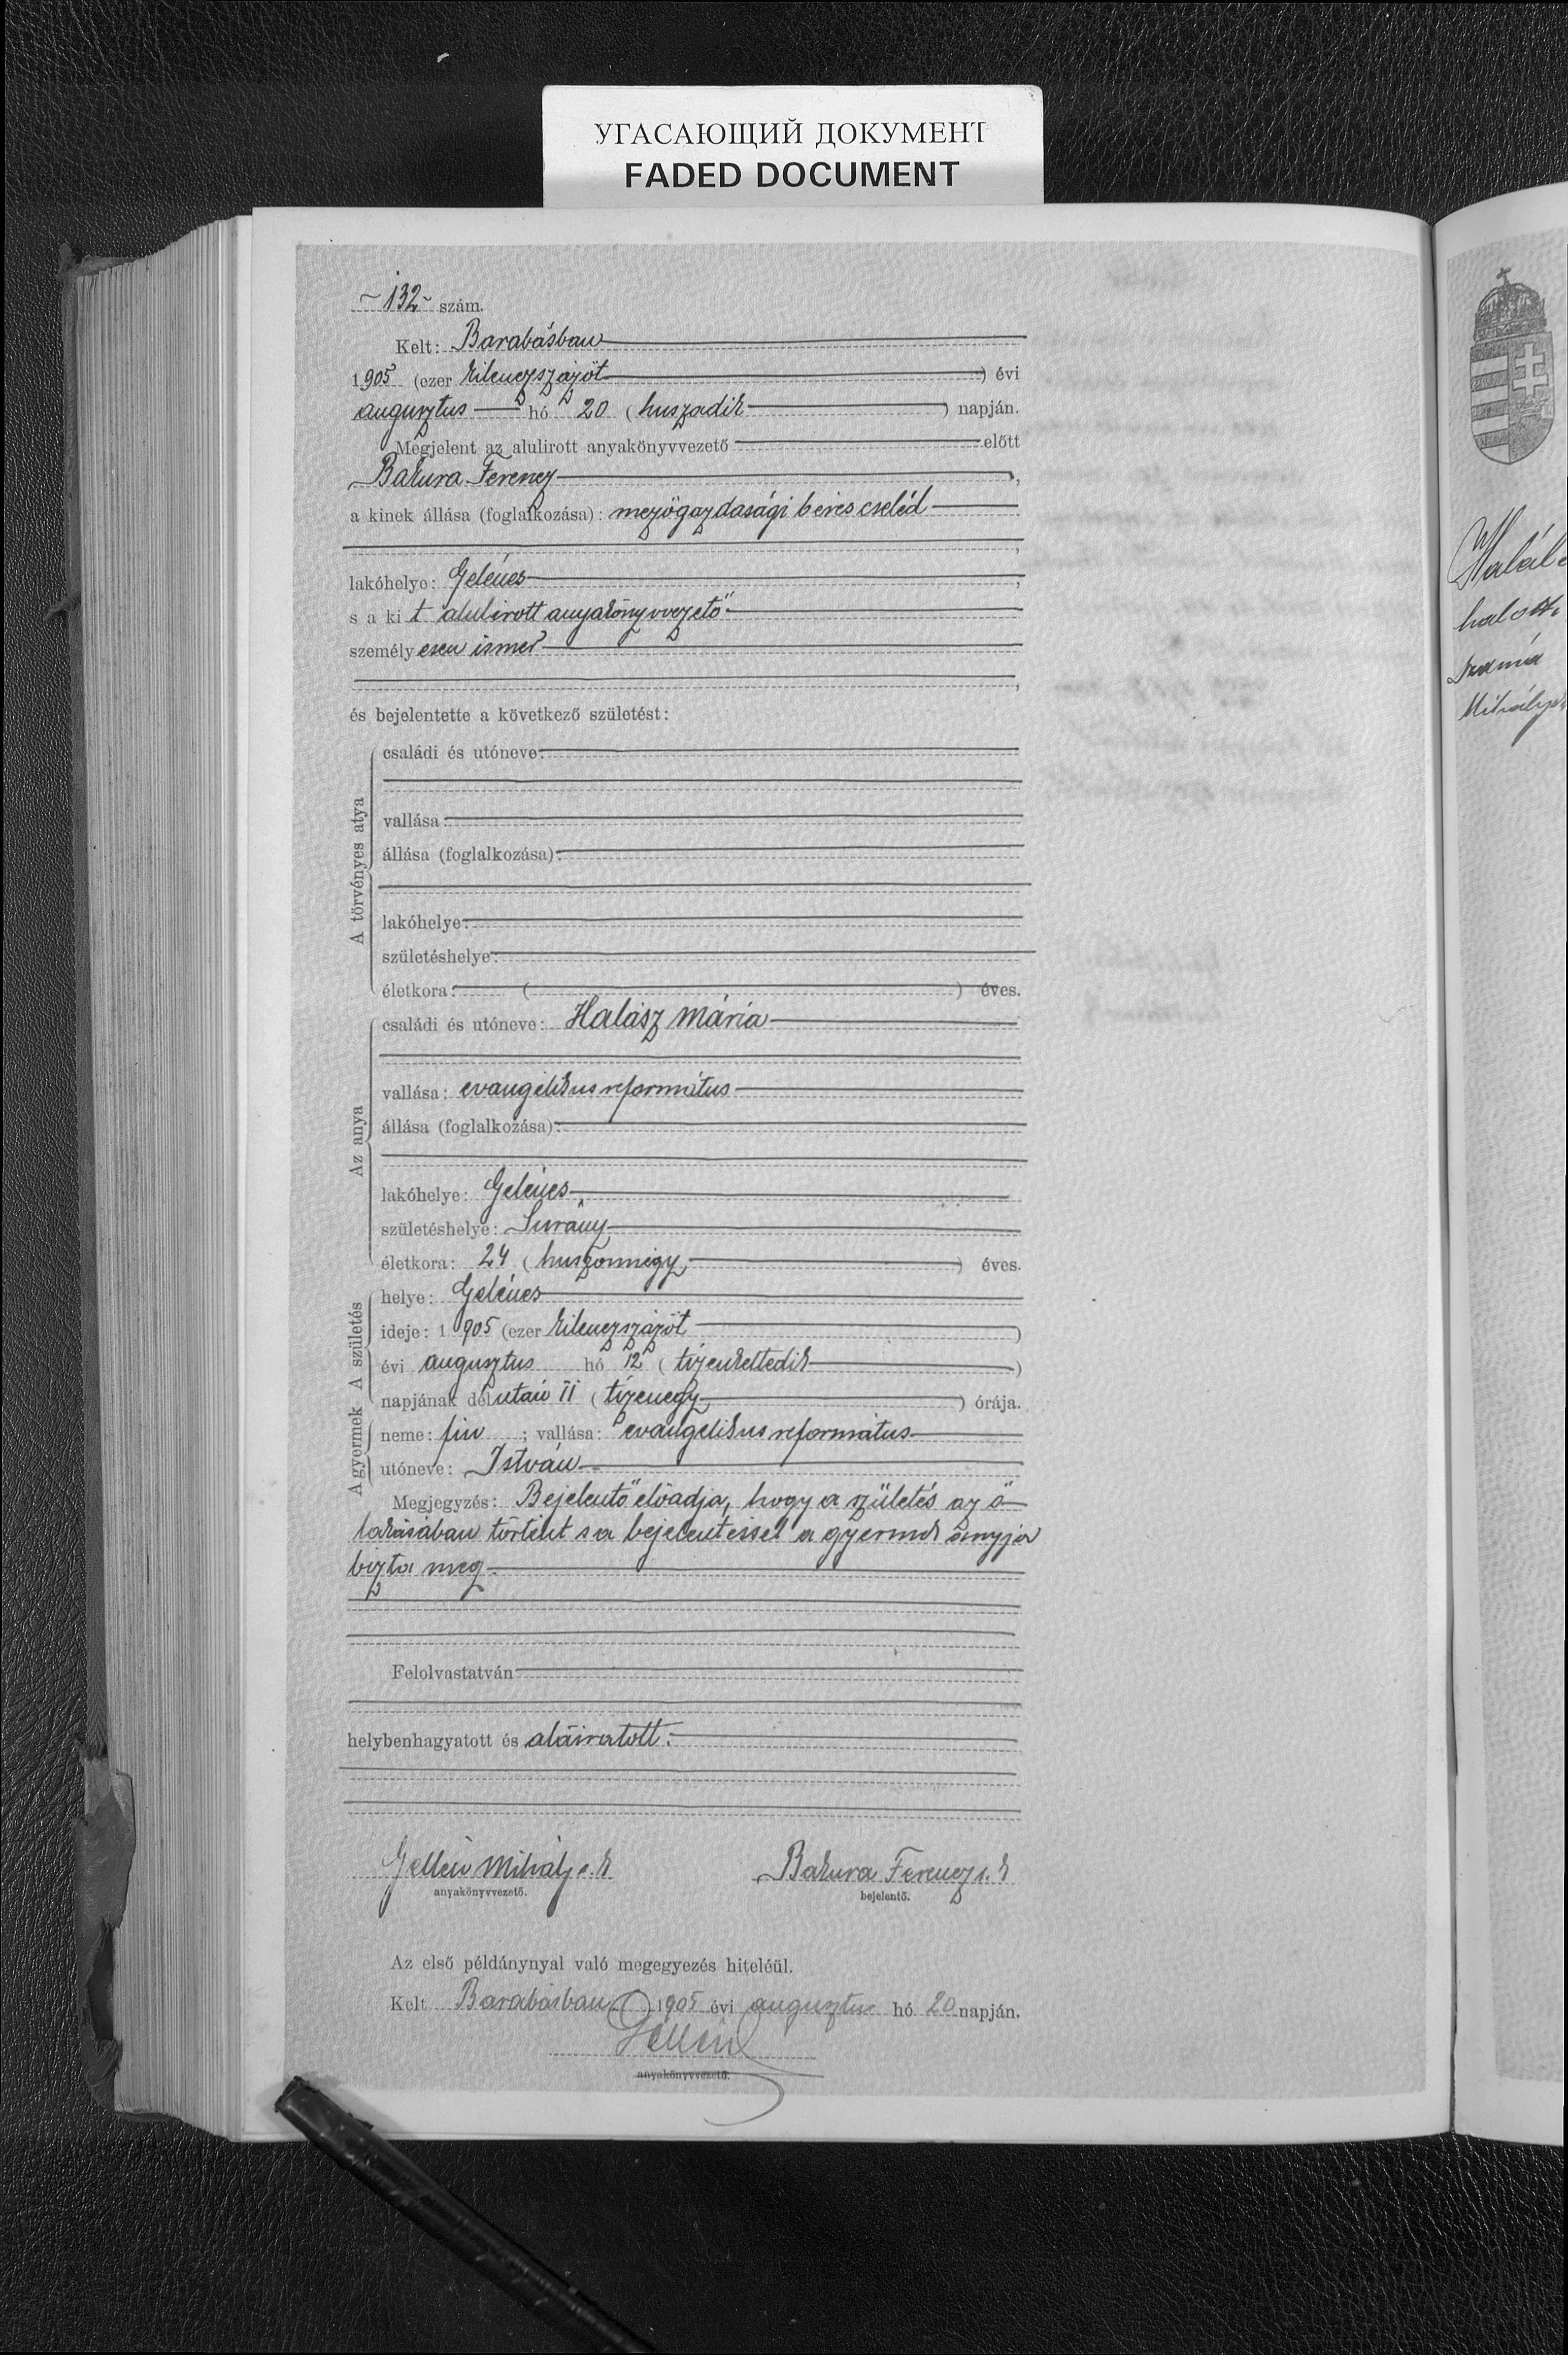 УГАСАЮЩИЙ ДОКУМЕНТ
FADED DOCUMENT
132 szám.
Kelt: Barabásban
1905 (ezer kilenczszázöt) évi
augusztus hó 20 (huszadik) napján.
Megjelent az alulirott anyakönyvvezető előtt
Bakura Ferencz,
a kinek állása (foglalkozása): mezőgazdasági béres cseléd
lakóhelye: Gelénes,
s a kit alulirott anyakönyvvezető
személyesen ismer
és bejelentette a következő születést:
A törvényes atya
családi és utóneve:
vallása:
állása (foglalkozása):
lakóhelye:
születéshelye:
életkora: ( ) éves.
Az anya
családi és utóneve: Halász Mária
vallása: evangélikus református
állása (foglalkozása):
lakóhelye: Gelénes
születéshelye: Surány
életkora: 24 (huszonnégy) éves.
A születés
helye: Gelénes
ideje: 1905 (ezer kilenczszázöt)
évi augusztus hó 12 (tizenkettedik)
napjának délután 11 (tizenegy) órája.
A gyermek
neme: fiu; vallása: evangelikus református
utóneve: István
Megjegyzés: Bejelentő előadja, hogy a születés az ő
lakásában történt s a bejelentéssel a gyermek anyja
bizta meg.
Felolvastatván
helybenhagyatott és aláiratott.
Gellén Mihály s. k Bakura Ferencz s. k
anyakönyvvezető. bejelentő.
Az első példánynyal való megegyezés hiteléül.
Kelt Barabásban 1905 évi augusztus hó 20 napján.
Gellén
anyakönyvvezető.